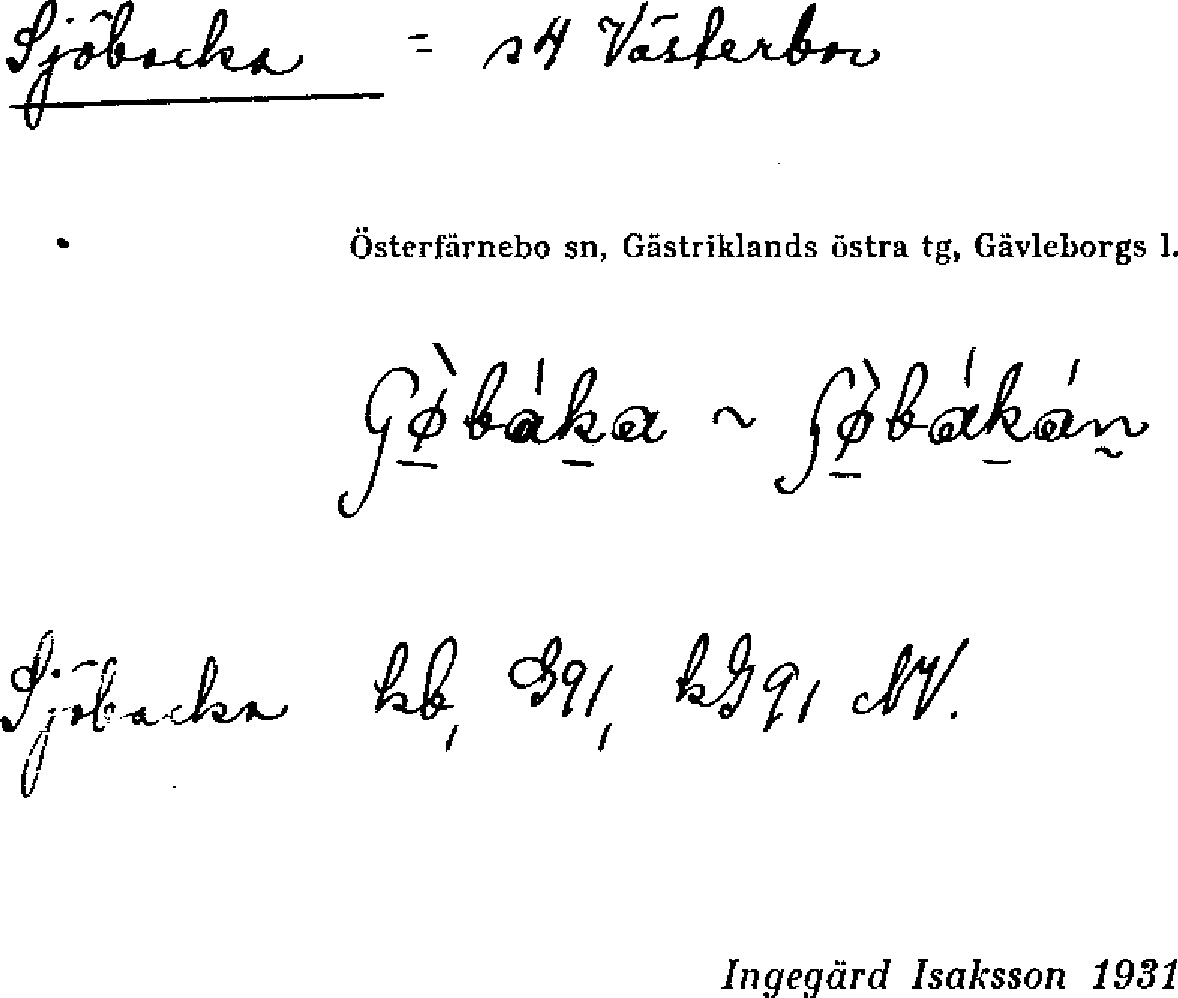 Sjöbacka = s4 Västerbor
Österfärnebo sn, Gästriklands östra tg, Gävleborgs l.
ʃø̀báka ~ ʃø̀bákán
Sjöbacka kb, G91, kG91 NV.
Ingegärd Isaksson 1931